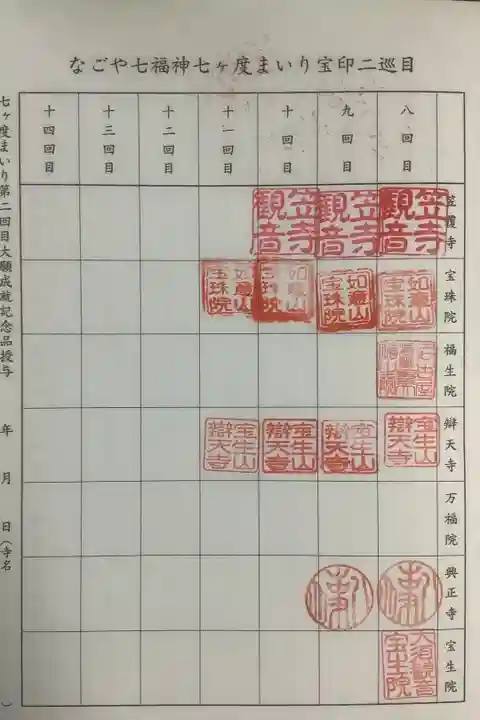 なごや七福神七ヶ度まいり宝印二巡目
八回目
九回目
十回目
十一回目
十二回目
十三回目
十四回目
笠覆寺
笠寺観音
笠寺観音
笠寺観音
宝珠院
如意山宝珠院
如意山宝珠院
如意山宝珠院
如意山宝珠院
福生院
辯天寺
宝生山辯天寺
宝生山辯天寺
宝生山辯天寺
宝生山辯天寺
万福院
興正寺
宝生院
大須観音宝生院
七ヶ度まいり第二回目大願成就記念品授与 年 月 日(寺名 )